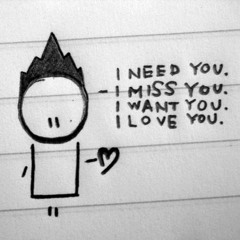 I NEED YOU.
I MISS YOU.
I WANT YOU.
I LOVE YOU.